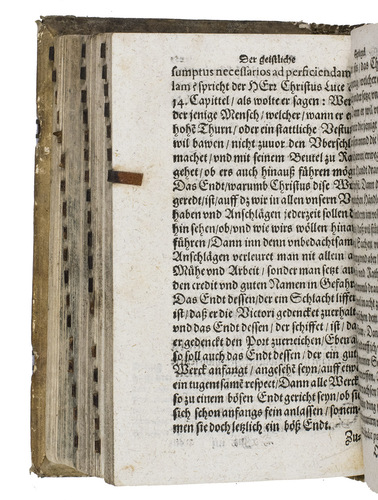 Der geistliche
sumptus necessarios ad perficiendam
lam? spricht der HErr Christus Luce
14. Capittel / als wolte er sagen: Wer
der jenige Mensch / welcher / wann er e
hohẽ Thurn / oder ein stattliche Vestu
wil bawen / nicht zuvor den Vberschl
machet / vnd mit seinem Beutel zu Ra
gehet / ob ers auch hinauß führen mög
Das Endt / warumb Christus dise W
geredt / ist / auff dz wir in allen vnsern V
haben vnd Anschlägen jederzeit sollen d
hin sehen / ob / vnd wie wirs wöllen hinau
führen / Dann inn denn vnbedachtsam
Anschlägen verleuret man nit allein a
Mühe vnd Arbeit / sonder man setzt au
den credit vnd guten Namen in Gefahr
Das Endt dessen / der ein Schlacht liffer
ist / daß er die Victori gedencket zuerhalt
vnd das Endt dessen / der schiffet / ist / da
er gedenckt den Port zuerreichen / Eben a
so soll auch das Endt dessen / der ein gut
Werck anfangt / angesehẽ seyn / auff etw
ein tugentsamẽ respect / Dann alle Werck
so zu einem bösen Endt gericht seyn / ob si
sich schon anfangs fein anlassen / so nem
men sie doch letzlich ein böß Endt.
Zu-